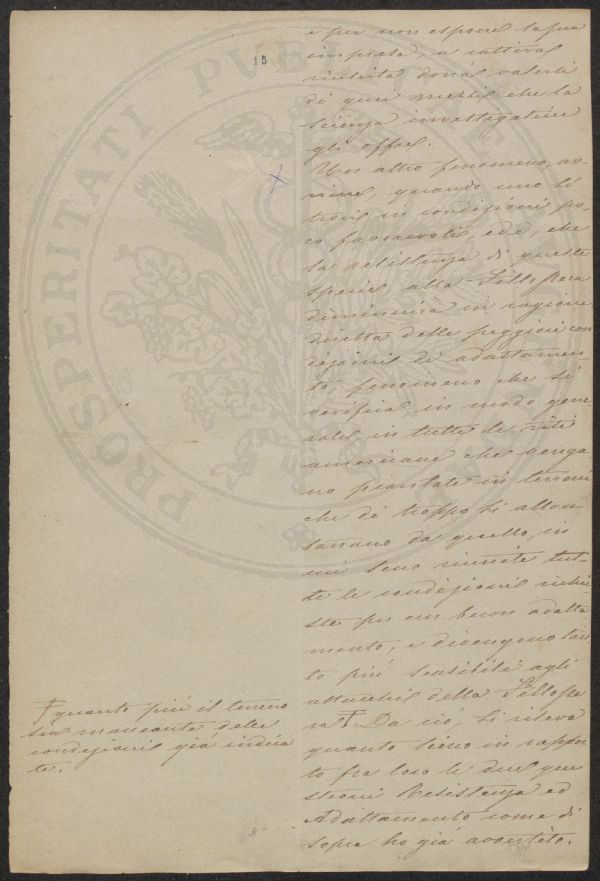 15
e per non esporre la sua
impresa, a cattiva
riuscita dovrà valersi
di quei mezzi che la
scienza investigatrice
gli offre.
Un altro fenomeno, av-
viene, quando uno si
trovi in condizioni po-
co favorevoli, ed è, che
la resistenza di queste
specie alla Fillossera
diminuirà in ragione
diretta delle peggiori con
dizioni di adattamen-
to, fenomeno che si
verifica, in modo gene
rale, in tutte le viti
americane che venga
no piantate in terreni
che di troppo si allon-
tanano da quello, in
cui sono riunite tut-
te le condizioni richie
ste per un buon adatta
mento, e divengono tan
to più sensibili agli
attacchi della Fillosse
ra Ŧ Da ciò, si rileva
quanto sieno in rappor
to fra loro le due que
stioni Resistenza ed
Adattamento come di
sopra ho già avvertito.
Ŧ quanto più il terreno
sia mancante delle
condizioni già indica
te.
PROSPERITATI PVBLICAE